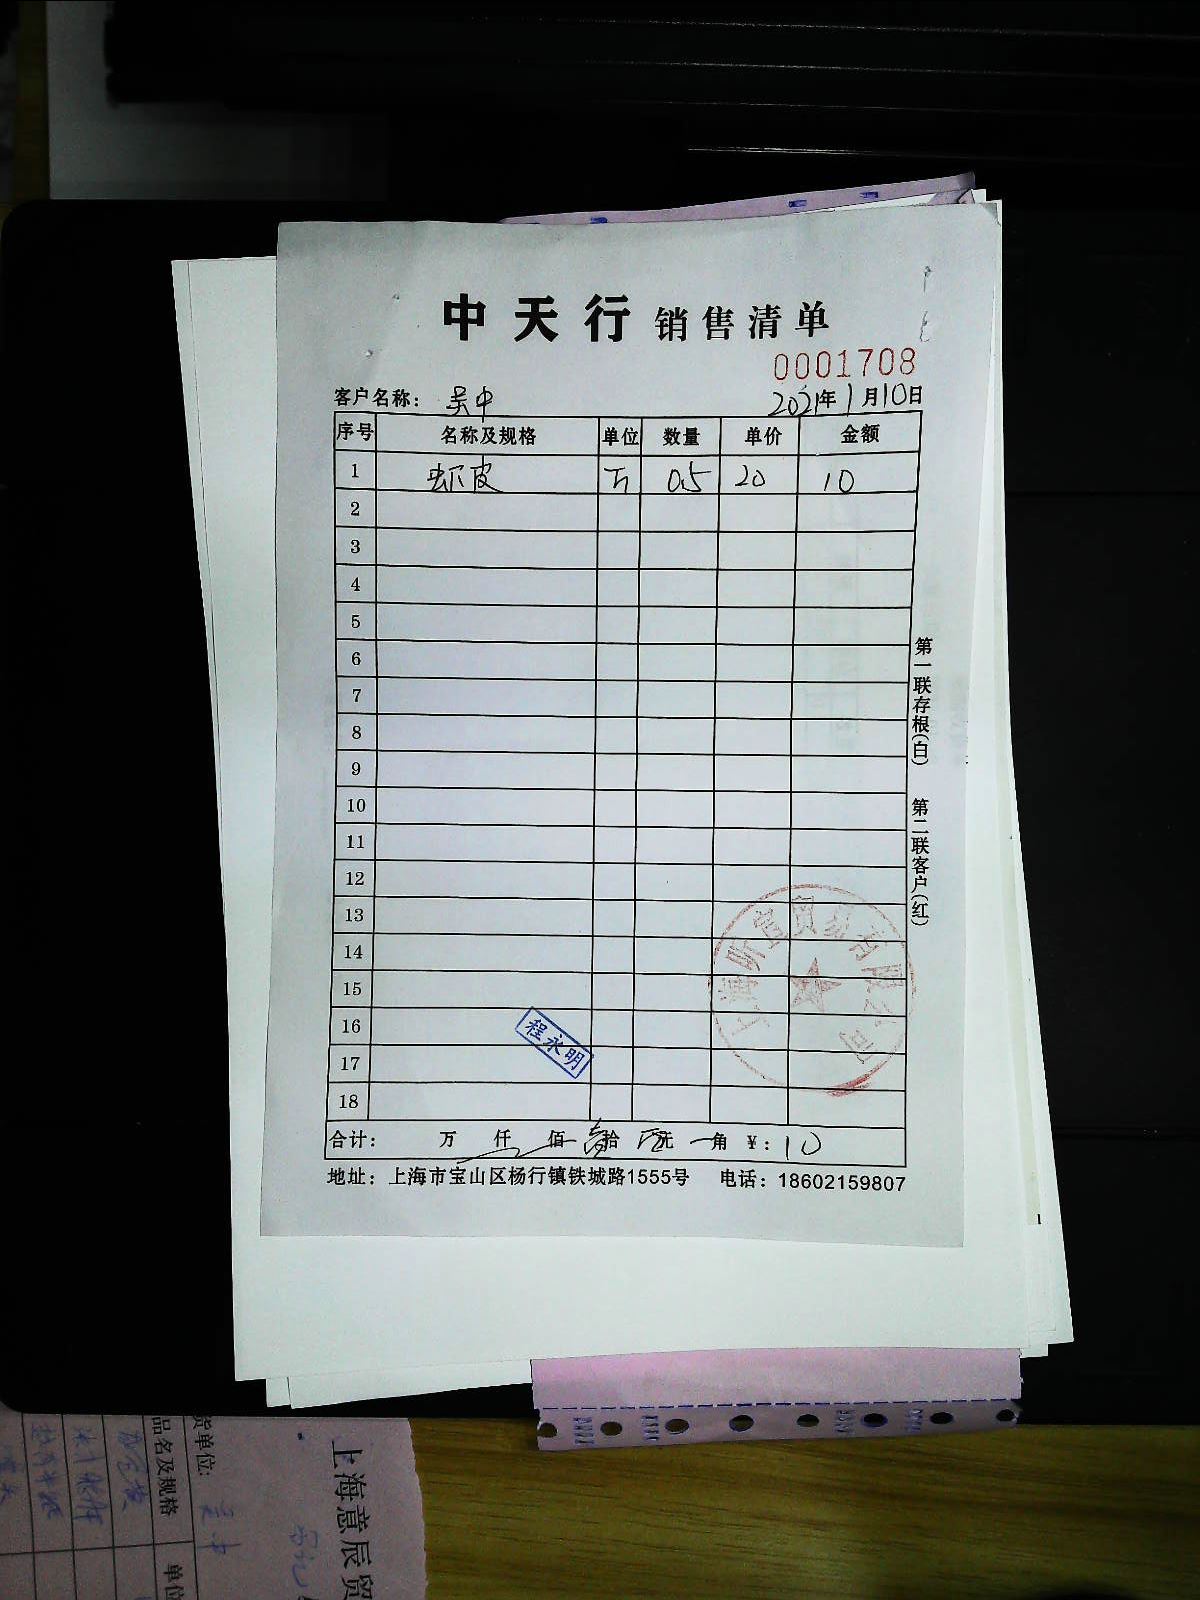 中天行 销售清单
0001708
客户名称： 吴中 2021年1月10日
序号 名称及规格 单位 数量 单价 金额
1 虾皮 斤 0.5 20 10
2
3
4
5
6
7
8
9
10
11
12
13
14
15
16
17
18
合计： 万 仟 佰 壹拾 元 角 ￥：10
地址：上海市宝山区杨行镇铁城路1555号 电话：18602159807
第一联存根(白) 第二联客户(红)
上海昕宜贸易有限公司
程永明
上海意辰贸
货单位: 吴中
品名及规格 单位